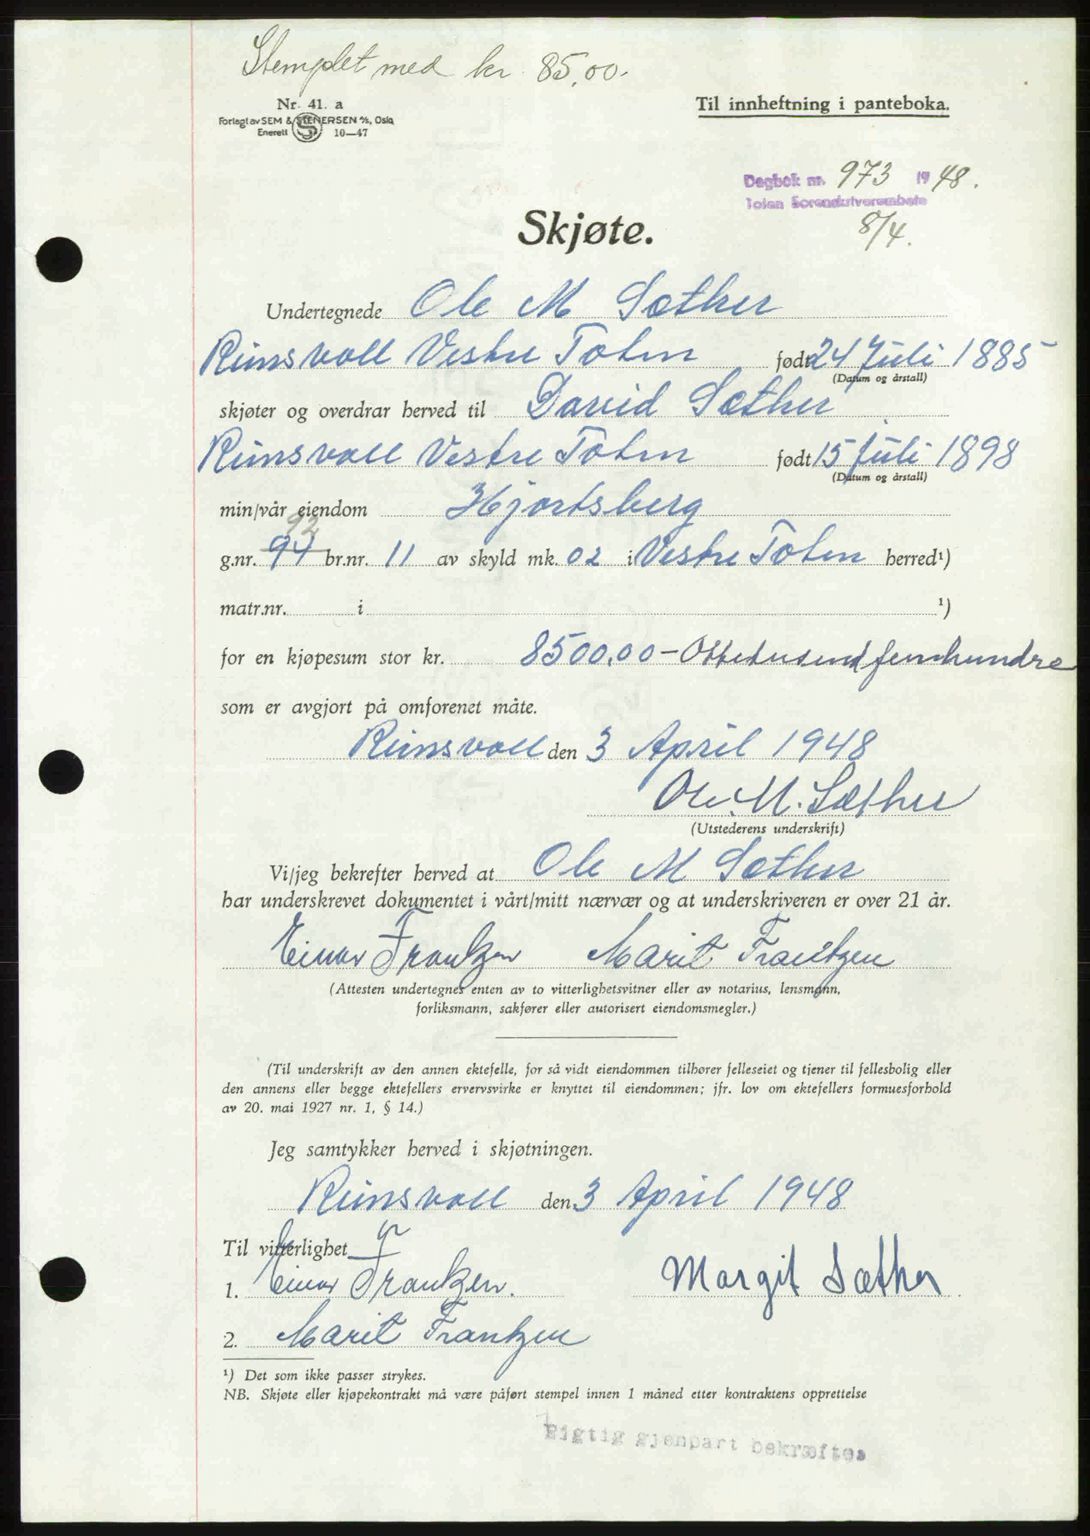 Stemplet med kr. 85,00.
Nr. 41. a
Forlagt av SEM & STENERSEN A/S, Oslo
Enerett 10—47
Til innheftning i panteboka.
Dagbok nr. 973 1948.
Toten Sorenskriverembete
8/4.
Skjøte.
Undertegnede Ole M Sæther
Reinsvoll Vestre Toten født 24 Juli 1885
(Datum og årstall)
skjøter og overdrar herved til David Sæther
Reinsvoll Vestre Toten født 15 Juli 1898
(Datum og årstall)
min/vår eiendom Hjortsberg
92
g.nr. 94 br.nr. 11 av skyld mk. 02 i Vestre Toten herred¹)
matr.nr. i ¹)
for en kjøpesum stor kr. 8500,00 — Ottetusendfemhundre
som er avgjort på omforenet måte.
Reinsvoll den 3 April 1948
Ole M. Sæther
(Utstederens underskrift)
Vi/jeg bekrefter herved at Ole M Sæther
har underskrevet dokumentet i vårt/mitt nærvær og at underskriveren er over 21 år.
Einar Frantzen Marit Frantzen
(Attesten undertegnes enten av to vitterlighetsvitner eller av notarius, lensmann,
forliksmann, sakfører eller autorisert eiendomsmegler.)
(Til underskrift av den annen ektefelle, for så vidt eiendommen tilhører felleseiet og tjener til fellesbolig eller
den annens eller begge ektefellers ervervsvirke er knyttet til eiendommen; jfr. lov om ektefellers formuesforhold
av 20. mai 1927 nr. 1, § 14.)
Jeg samtykker herved i skjøtningen.
Reinsvoll den 3 April 1948
Til vitterlighet
1. Einar Frantzen. Margit Sæther
2. Marit Frantzen
¹) Det som ikke passer strykes.
NB. Skjøte eller kjøpekontrakt må være påført stempel innen 1 måned etter kontraktens opprettelse
Rigtig gjenpart bekræftes